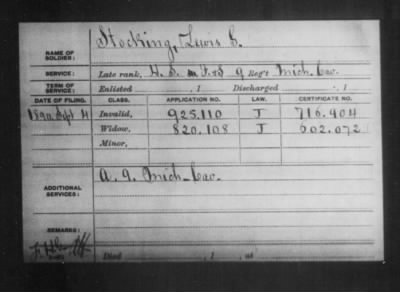 NAME OF SOLDIER: Stocking, Lewis C.
SERVICE: Late rank, H. S. in F. & S 9 Reg't Mich. Cav.
TERM OF SERVICE: Enlisted , 1 Discharged , 1
DATE OF FILING. CLASS. APPLICATION NO. LAW. CERTIFICATE NO.
1890 Sept 4 Invalid, 925.110 J 716.404
Widow, 820.108 J 602.072
Minor,
ADDITIONAL SERVICES: A. 9. Mich. Cav.
REMARKS:
Died , 1 , at